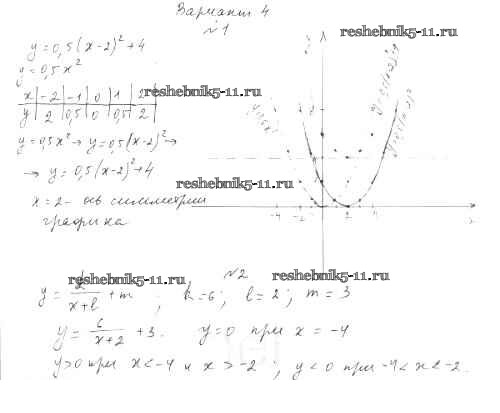 Вариант 4
№1
reshebnik5-11.ru
y=0,5(x-2)²+4
y=0,5x²
x | -2 | -1 | 0 | 1 | 2
y | 2 | 0,5 | 0 | 0,5 | 2
reshebnik5-11.ru
y=0,5x² → y=0,5(x-2)² →
→ y=0,5(x-2)²+4
reshebnik5-11.ru
x=2 - ось симметрии
графика
-4 -2 2 4
№2
reshebnik5-11.ru reshebnik5-11.ru
y = k/(x+l) + m ; k=6; l=2; m=3
y = 6/(x+2) + 3. y=0 при x = -4
y>0 при x<-4 и x>-2 ; y<0 при -4<x<-2.